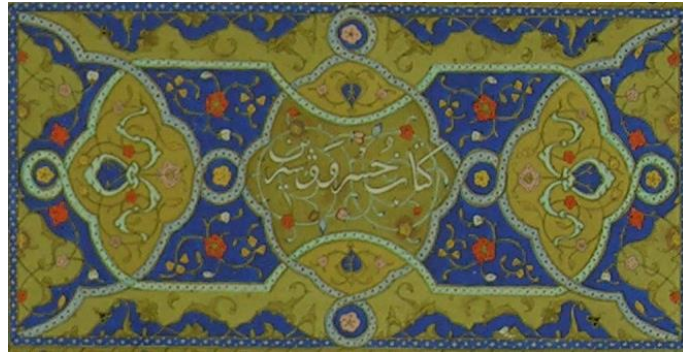 كتاب خسرو و شیرین